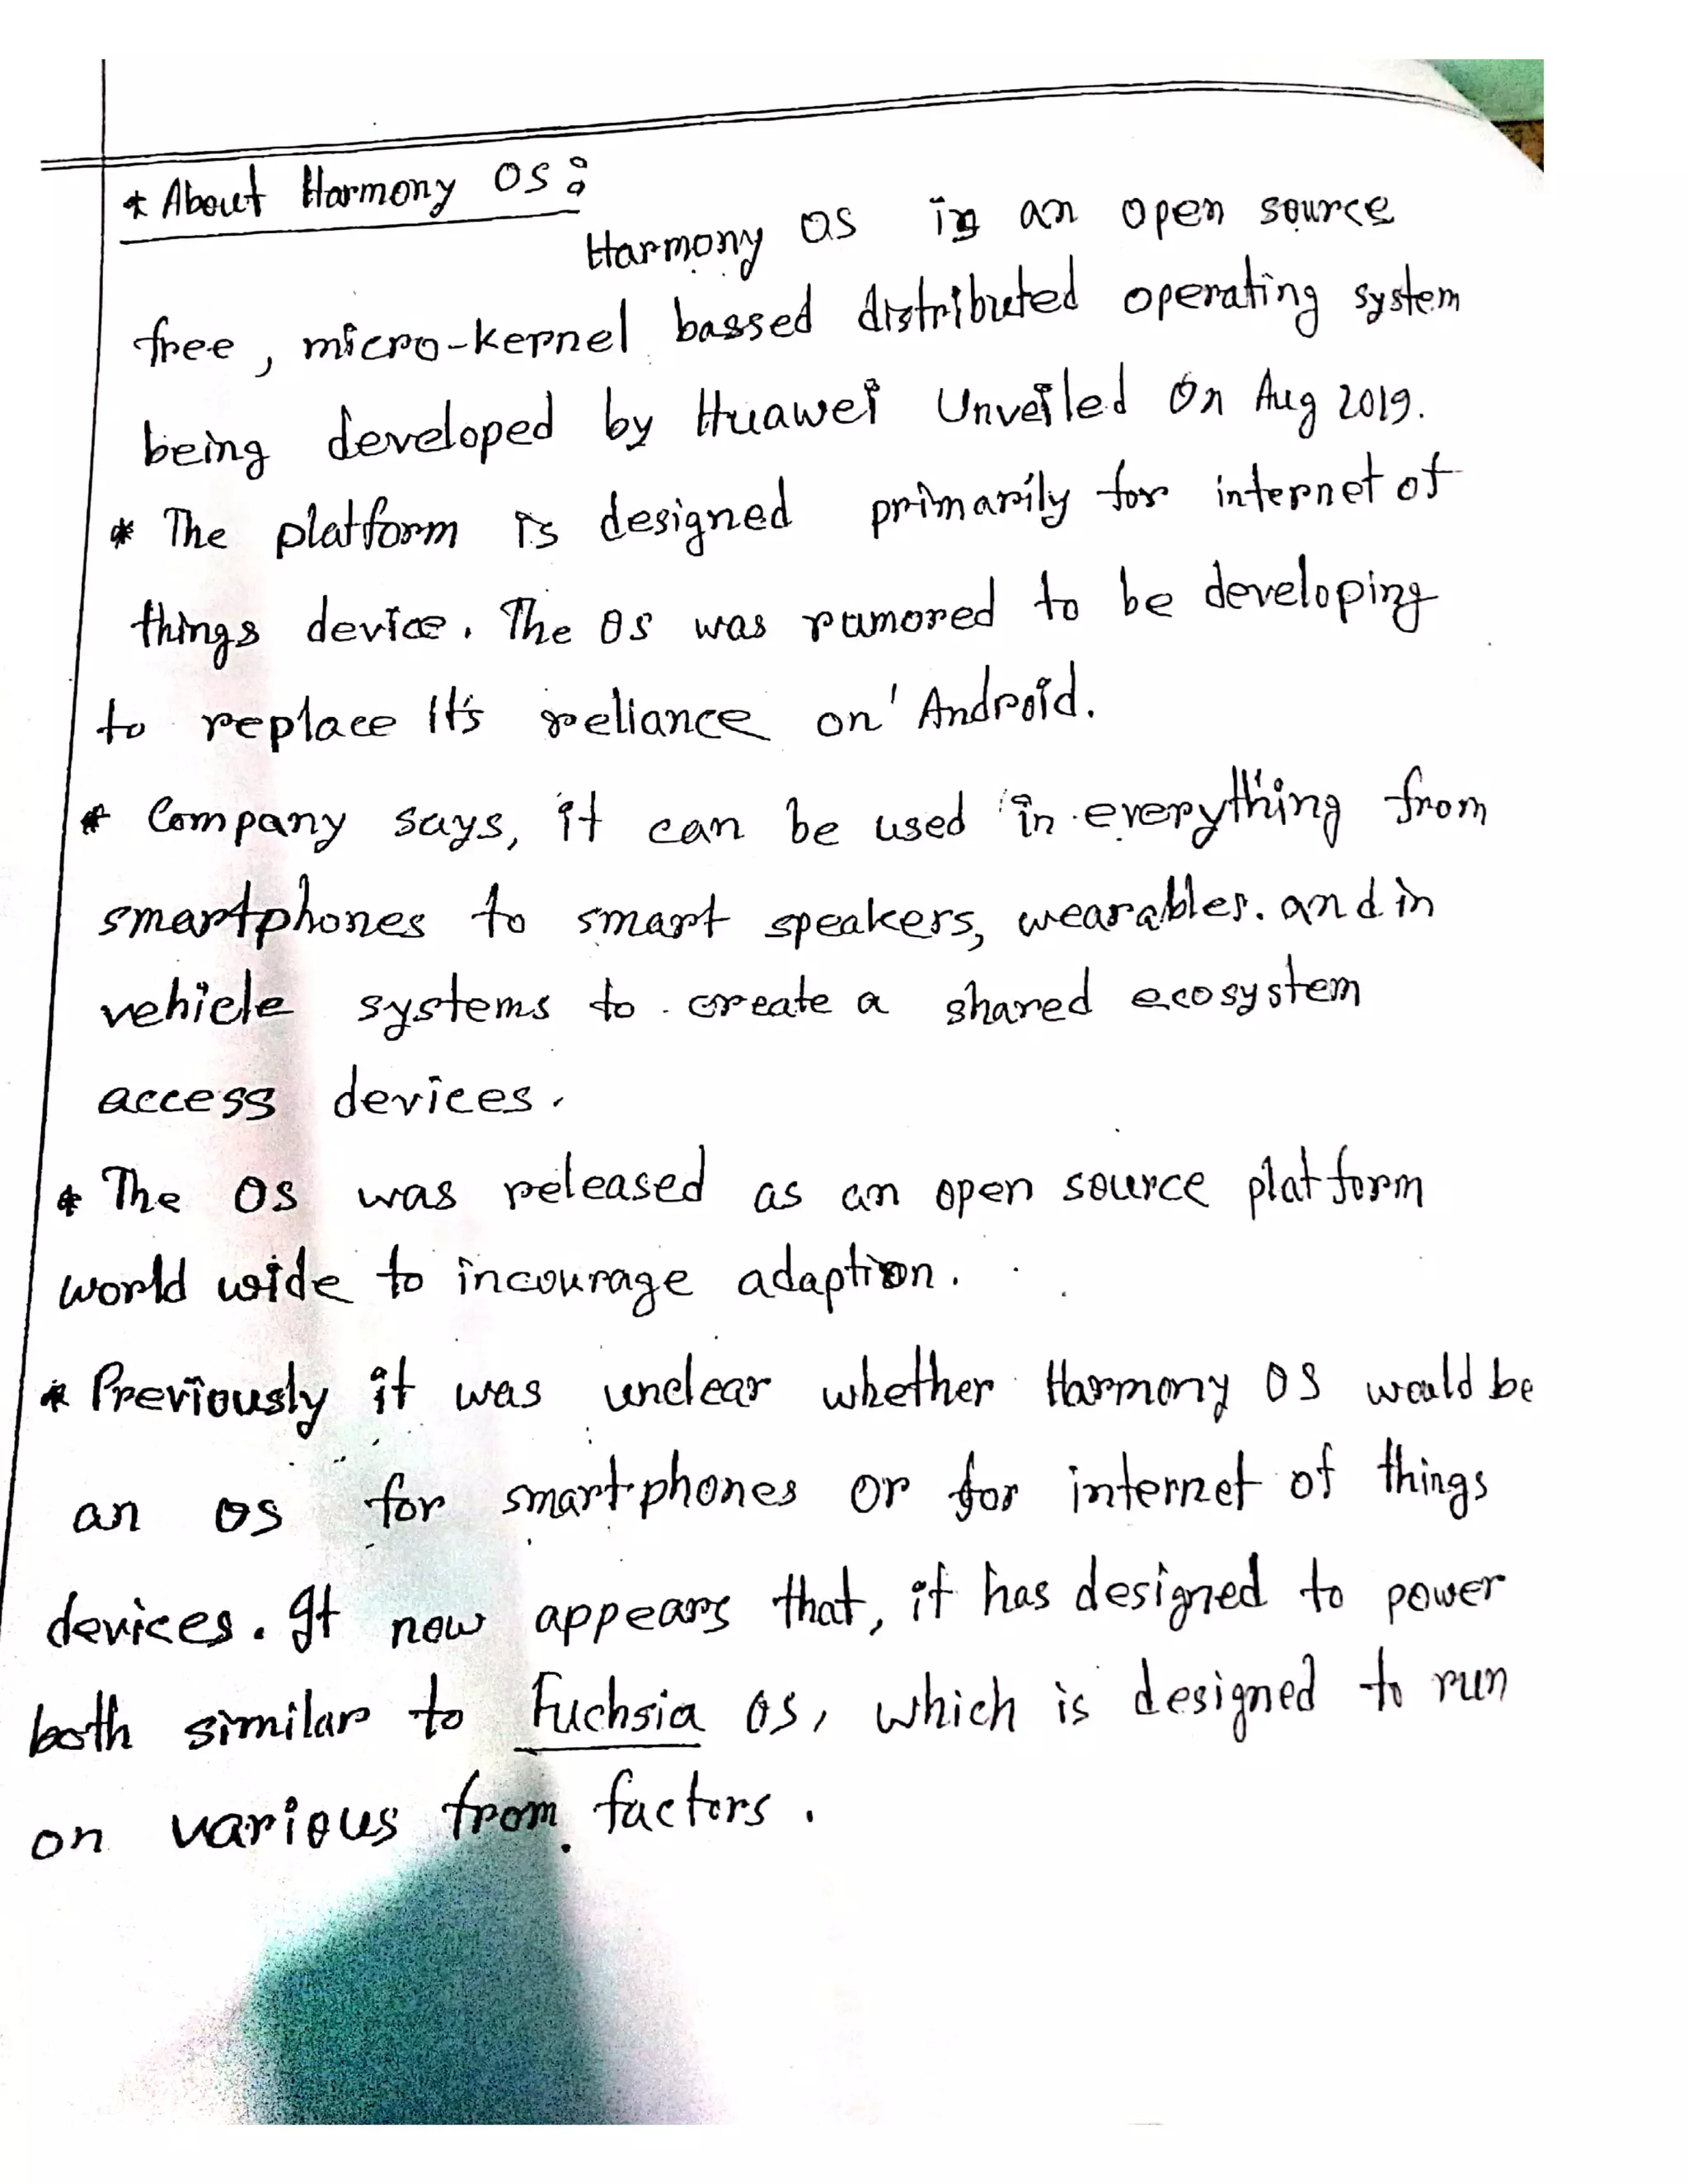 * About Harmony OS :
Harmony OS is an open source
free, micro-kernel bassed distributed operating system
being developed by Huawei Unveiled On Aug 2019.
* The platform is designed primarily for internet of
things device. The OS was rumored to be developing
to replace It's reliance on Android.
* Company says, it can be used in everything from
smartphones to smart speakers, wearables. and in
vehicle systems to create a shared ecosystem
access devices.
* The OS was released as an open source platform
world wide to incourage adaption.
* Previously it was unclear whether Harmony OS would be
an OS for smartphones or for internet of things
devices. It now appears that, it has designed to power
both similar to Fuchsia OS, which is designed to run
on various from factors.